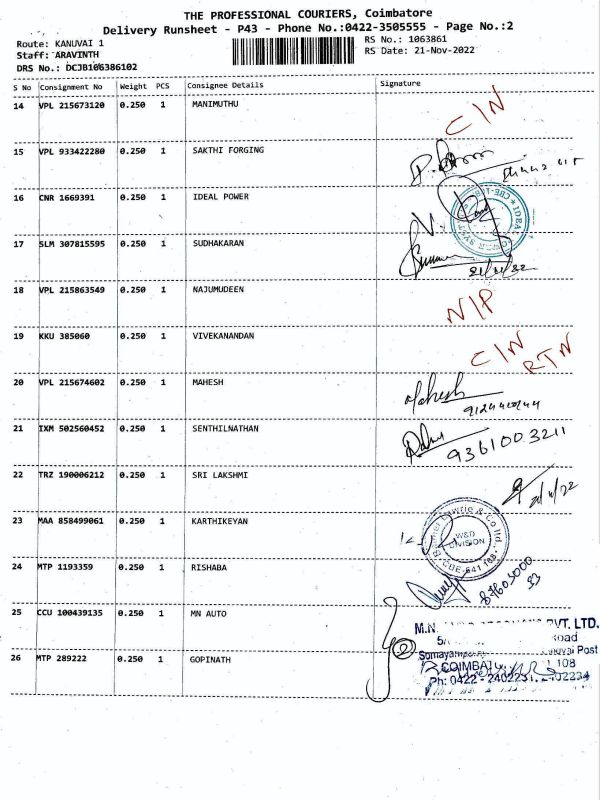 THE PROFESSIONAL COURIERS, Coimbatore
Delivery Runsheet - P43 - Phone No.:0422-3505555 - Page No.:2
Route: KANUVAI 1
RS No.: 1063861
Staff: ARAVINTH
RS Date: 21-Nov-2022
DRS No.: DCJB106386102
S No Consignment No Weight PCS Consignee Details Signature
14 VPL 215673120 0.250 1 MANIMUTHU
C/N
15 VPL 933422280 0.250 1 SAKTHI FORGING
16 CNR 1669391 0.250 1 IDEAL POWER
17 SLM 307815595 0.250 1 SUDHAKARAN
18 VPL 215863549 0.250 1 NAJUMUDEEN
N/P
19 KKU 385060 0.250 1 VIVEKANANDAN
C/N
RTN
20 VPL 215674602 0.250 1 MAHESH
Mahesh
21 IXM 502560452 0.250 1 SENTHILNATHAN
9361003211
22 TRZ 190006212 0.250 1 SRI LAKSHMI
23 MAA 858499061 0.250 1 KARTHIKEYAN
& Co ltd.
W&D
DIVISION
CBE-641 108
24 MTP 1193359 0.250 1 RISHABA
25 CCU 100439135 0.250 1 MN AUTO
M.N PVT. LTD.
26 MTP 289222 0.250 1 GOPINATH
Post
108
Ph: 0422 - 2402231, 2402234